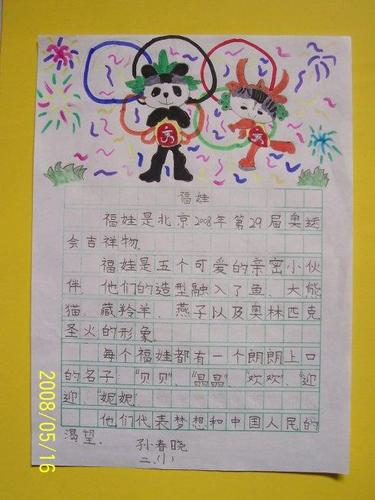 福娃
福娃是北京2008年第29届奥运
会吉祥物.
福娃是五个可爱的亲密小伙
伴.他们的造型融入了鱼、大熊
猫、藏羚羊、燕子以及奥林匹克
圣火的形象.
每个福娃都有一个朗朗上口
的名子:"贝贝"、"晶晶"、"欢欢"、"迎
迎"、"妮妮".
他们代表梦想和中国人民的
渴望.
孙春晓
二.(1)
2008/05/16